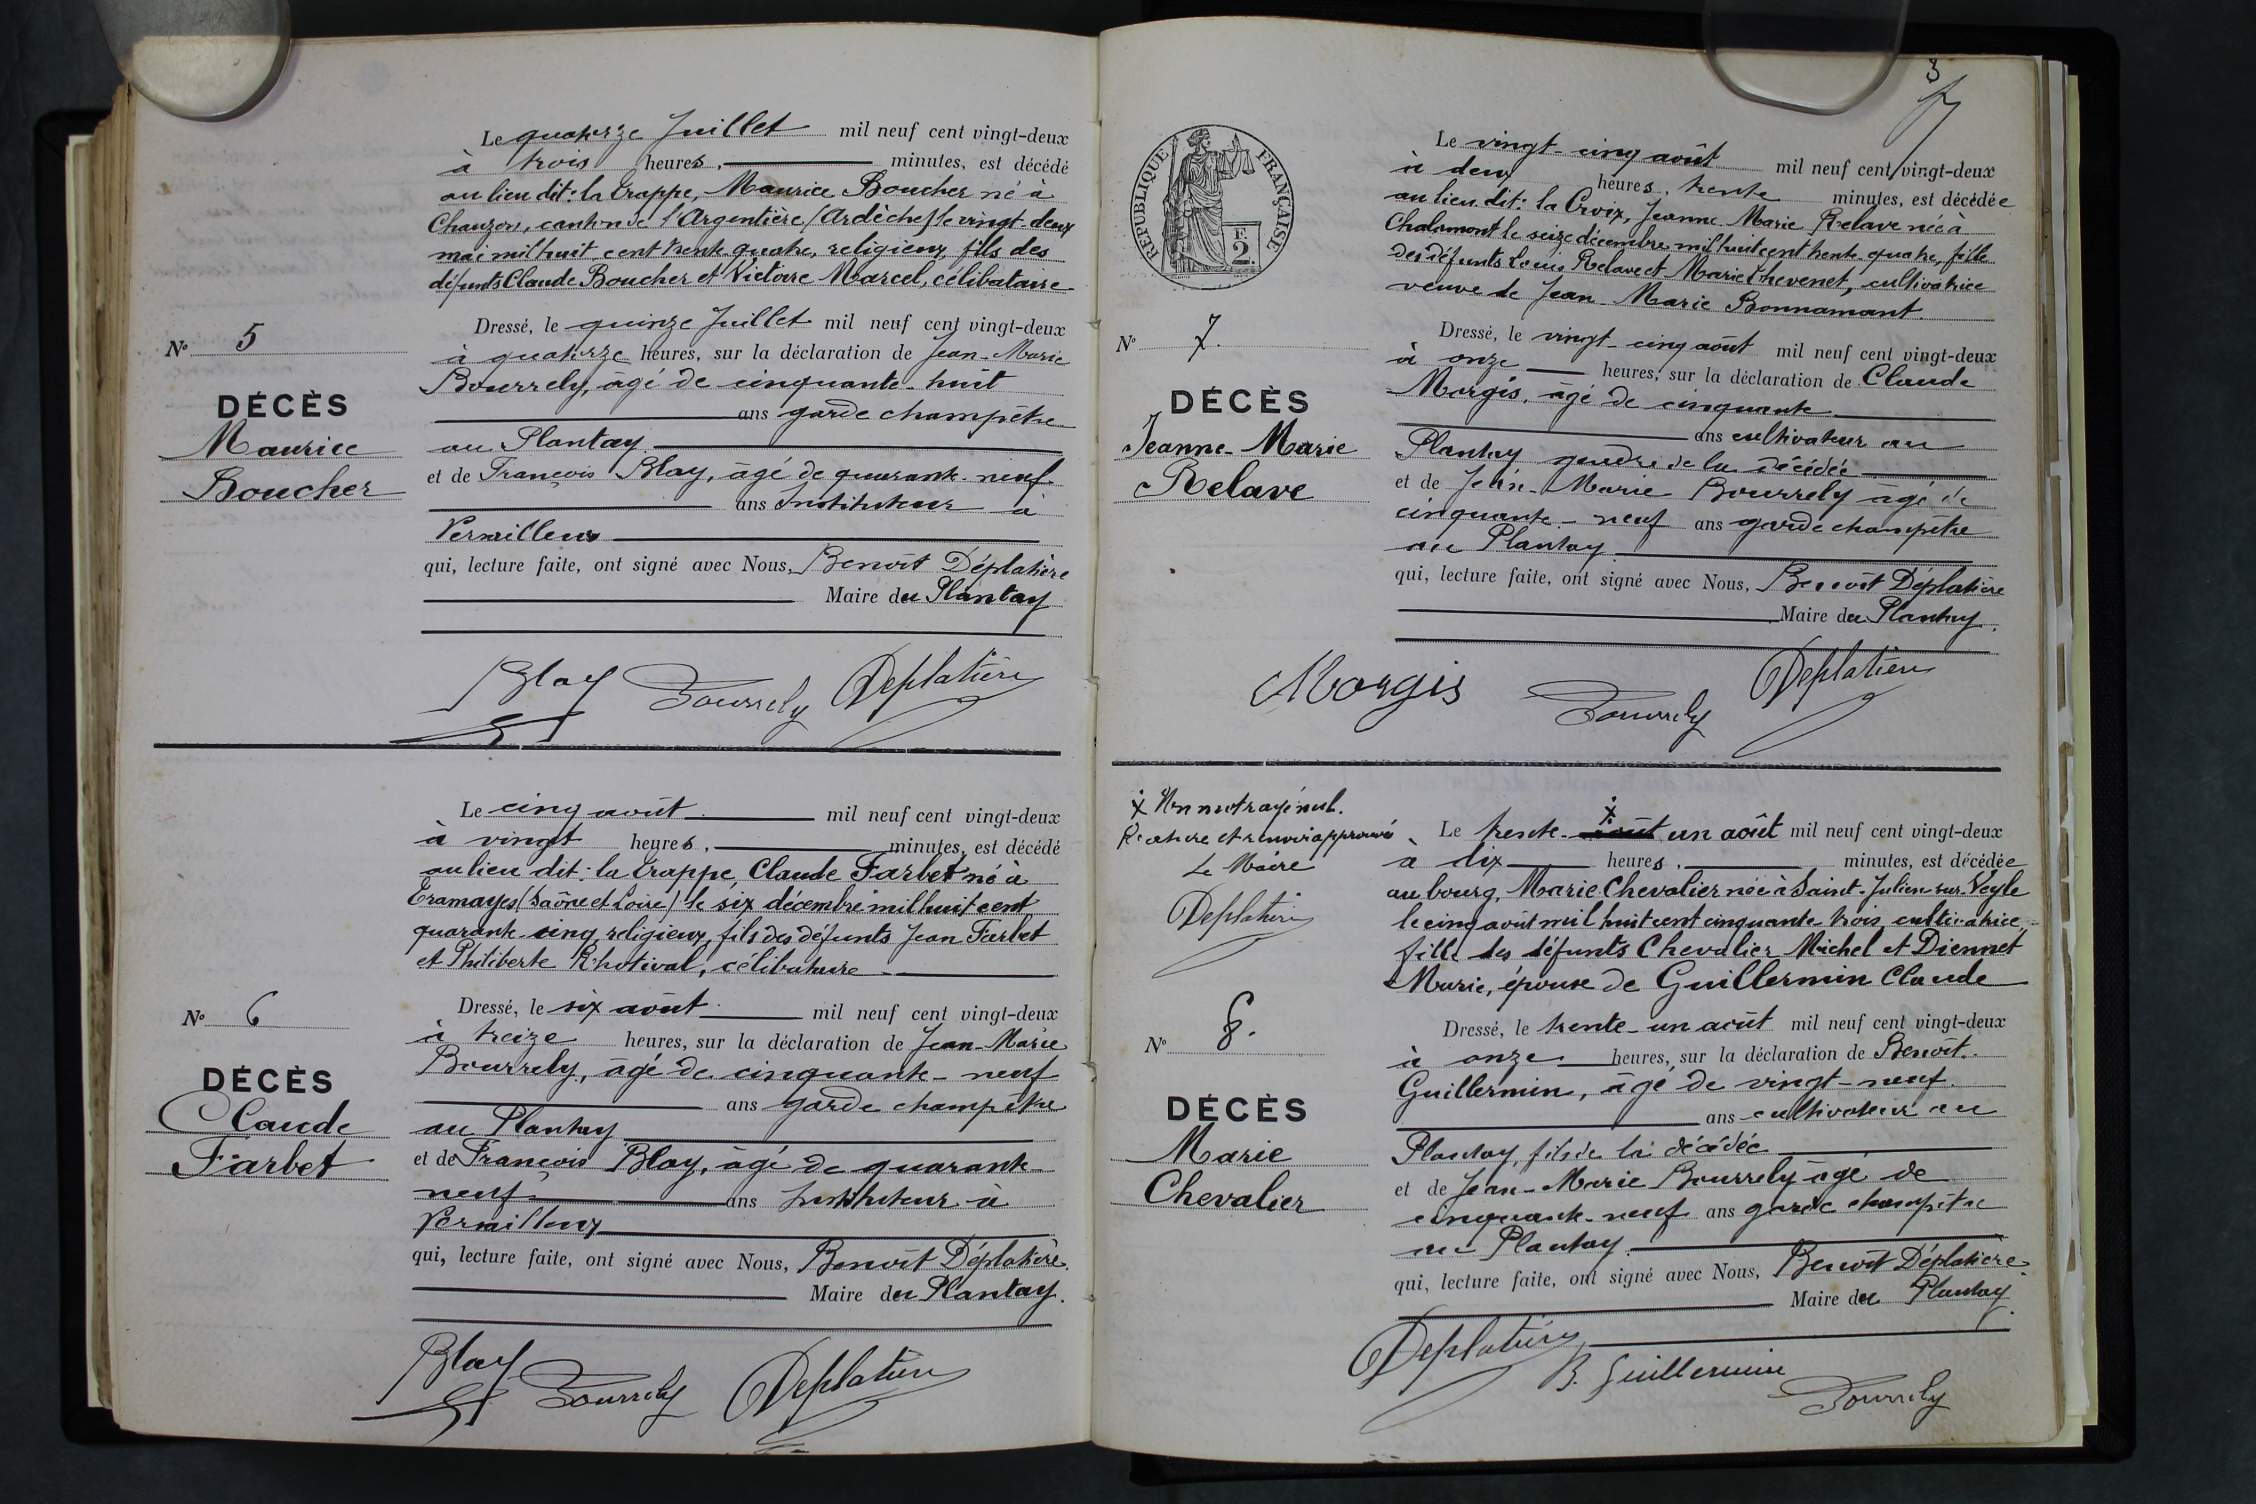 Le quatorze Juillet mil neuf cent vingt-deux
à trois heures, minutes, est décédé
au lieu dit: la Trappe, Maurice Boucher né à
Chauzon, canton de l'Argentière (Ardèche) le vingt-deux
mai mil huit cent trente quatre, religieux, fils des
défunts Claude Boucher et Victoire Marcel, célibataire
Dressé, le quinze Juillet mil neuf cent vingt-deux
à quatorze heures, sur la déclaration de Jean-Marie
Bourrely, âgé de cinquante-huit
ans garde champêtre
au Plantay
et de François Blay, âgé de quarante-neuf
ans Instituteur à
Versailleux
qui, lecture faite, ont signé avec Nous, Benoît Déplatière
Maire du Plantay
Nº 5
DÉCÈS
Maurice
Boucher
Blay Bourrely Deplatière
Le cinq août mil neuf cent vingt-deux
à vingt heures, minutes, est décédé
au lieu dit: la Trappe, Claude Farbet né à
Tramayes (Saône et Loire) le six décembre mil huit cent
quarante-cinq religieux, fils des défunts Jean Farbet
et Philiberte Rhotival, célibataire
Dressé, le six août mil neuf cent vingt-deux
à treize heures, sur la déclaration de Jean-Marie
Bourrely, âgé de cinquante-neuf
ans garde champêtre
au Plantay
et de François Blay, âgé de quarante-
neuf ans Instituteur à
Versailleux
qui, lecture faite, ont signé avec Nous, Benoît Déplatière.
Maire du Plantay.
Nº 6
DÉCÈS
Claude
Farbet
Blay Bourrely Deplatière
3
RÉPUBLIQUE FRANÇAISE
F.
2.
Le vingt-cinq août mil neuf cent vingt-deux
à deux heures, trente minutes, est décédée
au lieu dit: la Croix, Jeanne-Marie Relave née à
Chalamont le seize décembre mil huit cent trente quatre, fille
des défunts Louis Relave et Marie Thevenet, cultivatrice
veuve de Jean-Marie Bonnamant.
Dressé, le vingt-cinq août mil neuf cent vingt-deux
à onze heures, sur la déclaration de Claude
Morgis, âgé de cinquante
ans cultivateur au
Plantay gendre de la décédée
et de Jean-Marie Bourrely âgé de
cinquante-neuf ans garde champêtre
au Plantay
qui, lecture faite, ont signé avec Nous, Benoît Déplatière
Maire du Plantay.
Nº 7.
DÉCÈS
Jeanne-Marie
Relave
Morgis Bourrely Deplatière
x Un mot rayé nul.
Rature et renvoi approuvés
Le Maire
Deplatière
Le trente-août un août mil neuf cent vingt-deux
à dix heures, minutes, est décédée
au bourg, Marie Chevalier née à Saint-Julien sur Veyle
le cinq août mil huit cent cinquante-trois, cultivatrice,
fille des défunts Chevalier Michel et Diennet
Marie, épouse de Guillermin Claude
Dressé, le trente-un août mil neuf cent vingt-deux
à onze heures, sur la déclaration de Benoît
Guillermin, âgé de vingt-neuf
ans cultivateur au
Plantay, fils de la décédée
et de Jean-Marie Bourrely âgé de
cinquante-neuf ans garde champêtre
au Plantay
qui, lecture faite, ont signé avec Nous, Benoît Déplatière.
Maire du Plantay.
Nº 8.
DÉCÈS
Marie
Chevalier
Deplatière
B. Guillermin
Bourrely